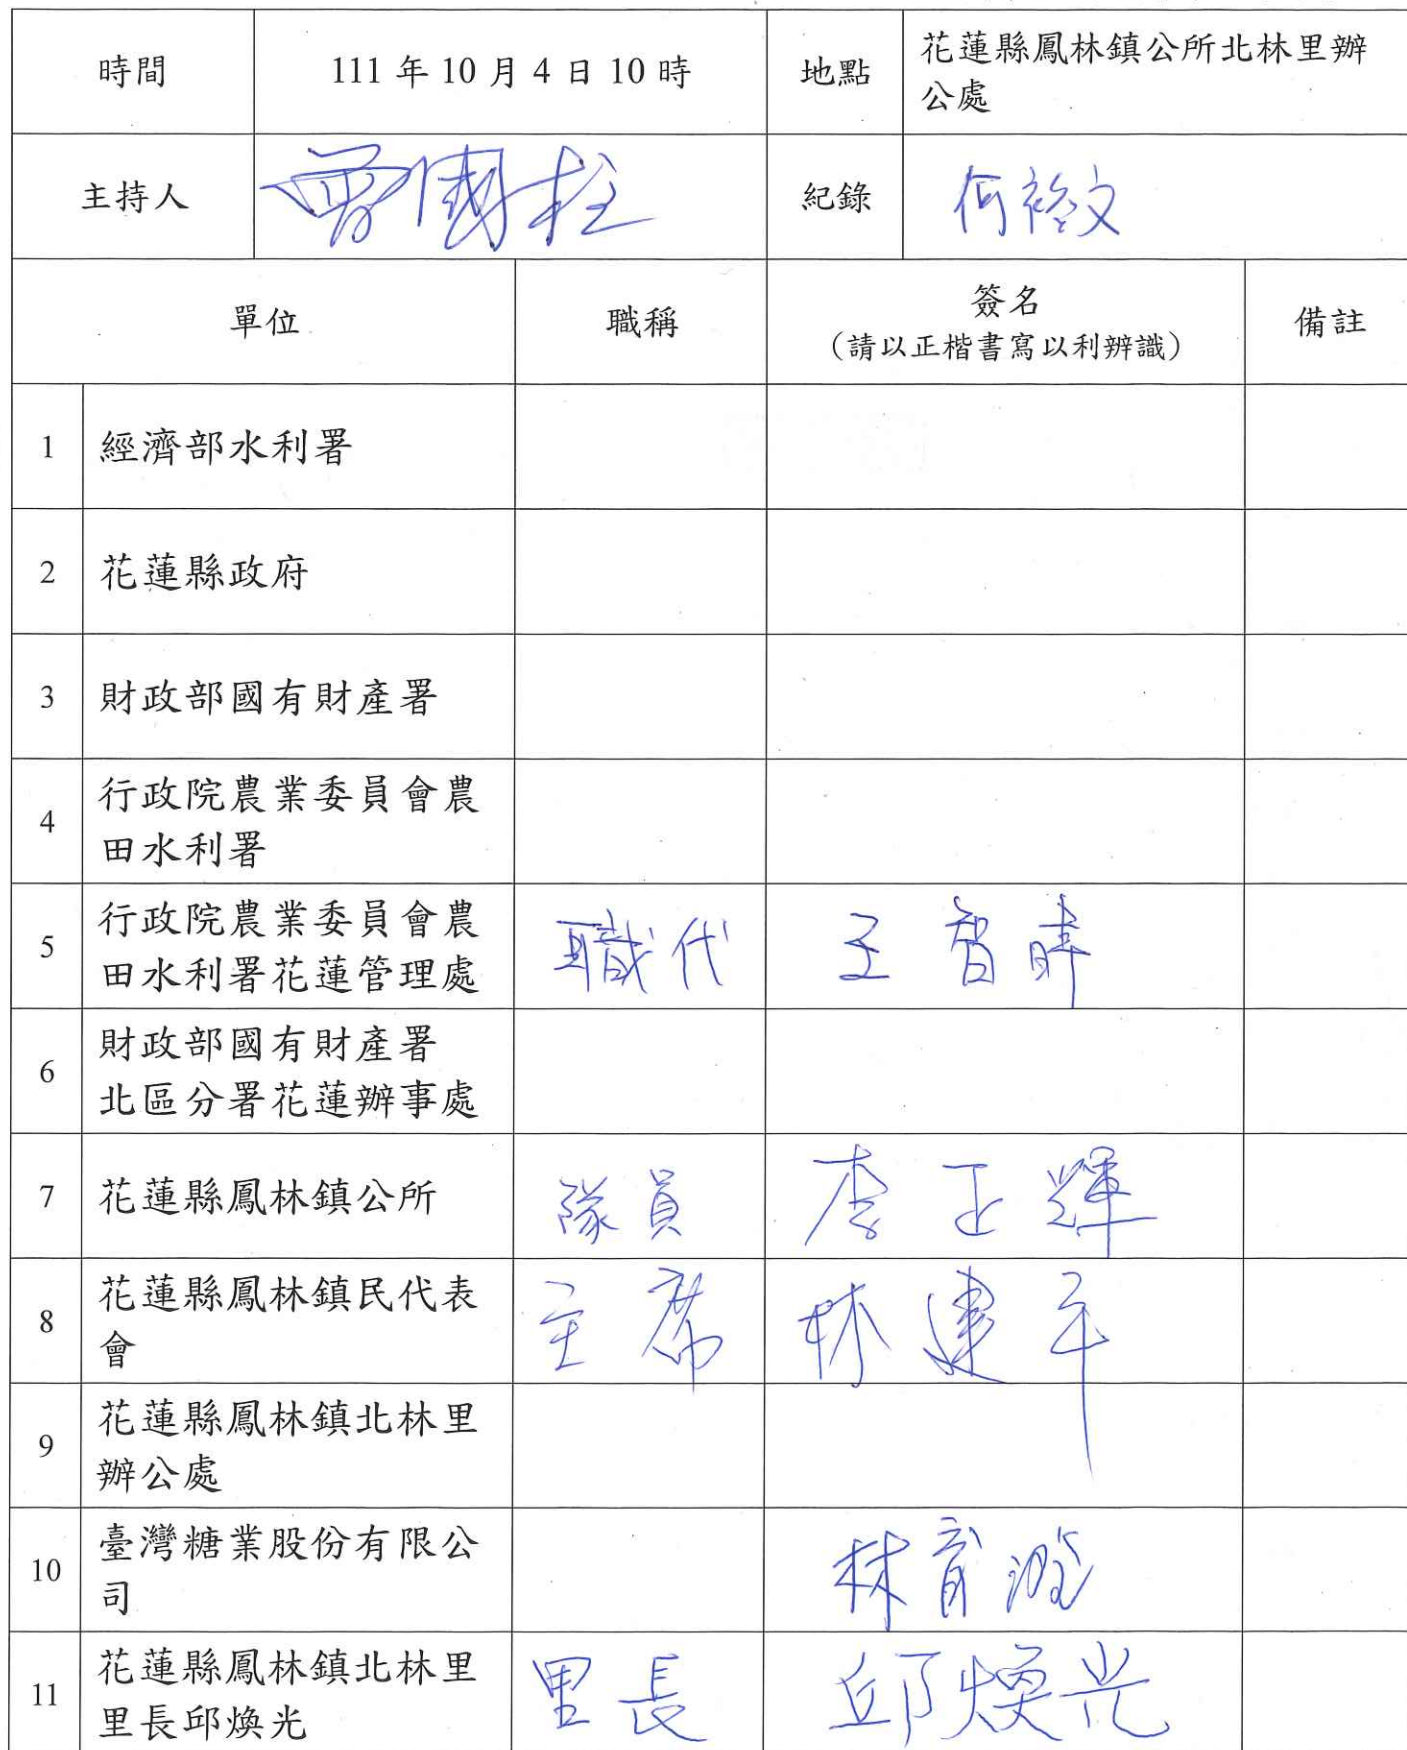 時間 111 年 10 月 4 日 10 時 地點 花蓮縣鳳林鎮公所北林里辦
公處
主持人 曾國柱 紀錄 何裕文
單位 職稱 簽名 備註
（請以正楷書寫以利辨識）
1 經濟部水利署
2 花蓮縣政府
3 財政部國有財產署
4 行政院農業委員會農
田水利署
5 行政院農業委員會農
田水利署花蓮管理處 職代 王智暐
6 財政部國有財產署
北區分署花蓮辦事處
7 花蓮縣鳳林鎮公所 隊員 李正輝
8 花蓮縣鳳林鎮民代表
會 主席 林建平
9 花蓮縣鳳林鎮北林里
辦公處
10 臺灣糖業股份有限公
司 林育
11 花蓮縣鳳林鎮北林里
里長邱煥光 里長 邱煥光